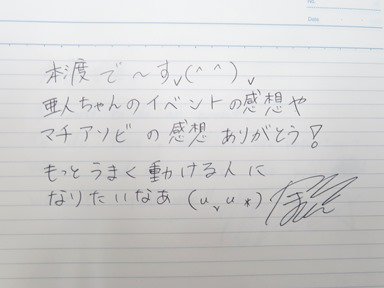 No.
Date
本渡で〜すv(^^)v
亜人ちゃんのイベントの感想や
マチアソビの感想ありがとう!
もっとうまく動ける人に
なりたいなあ(uvu*)